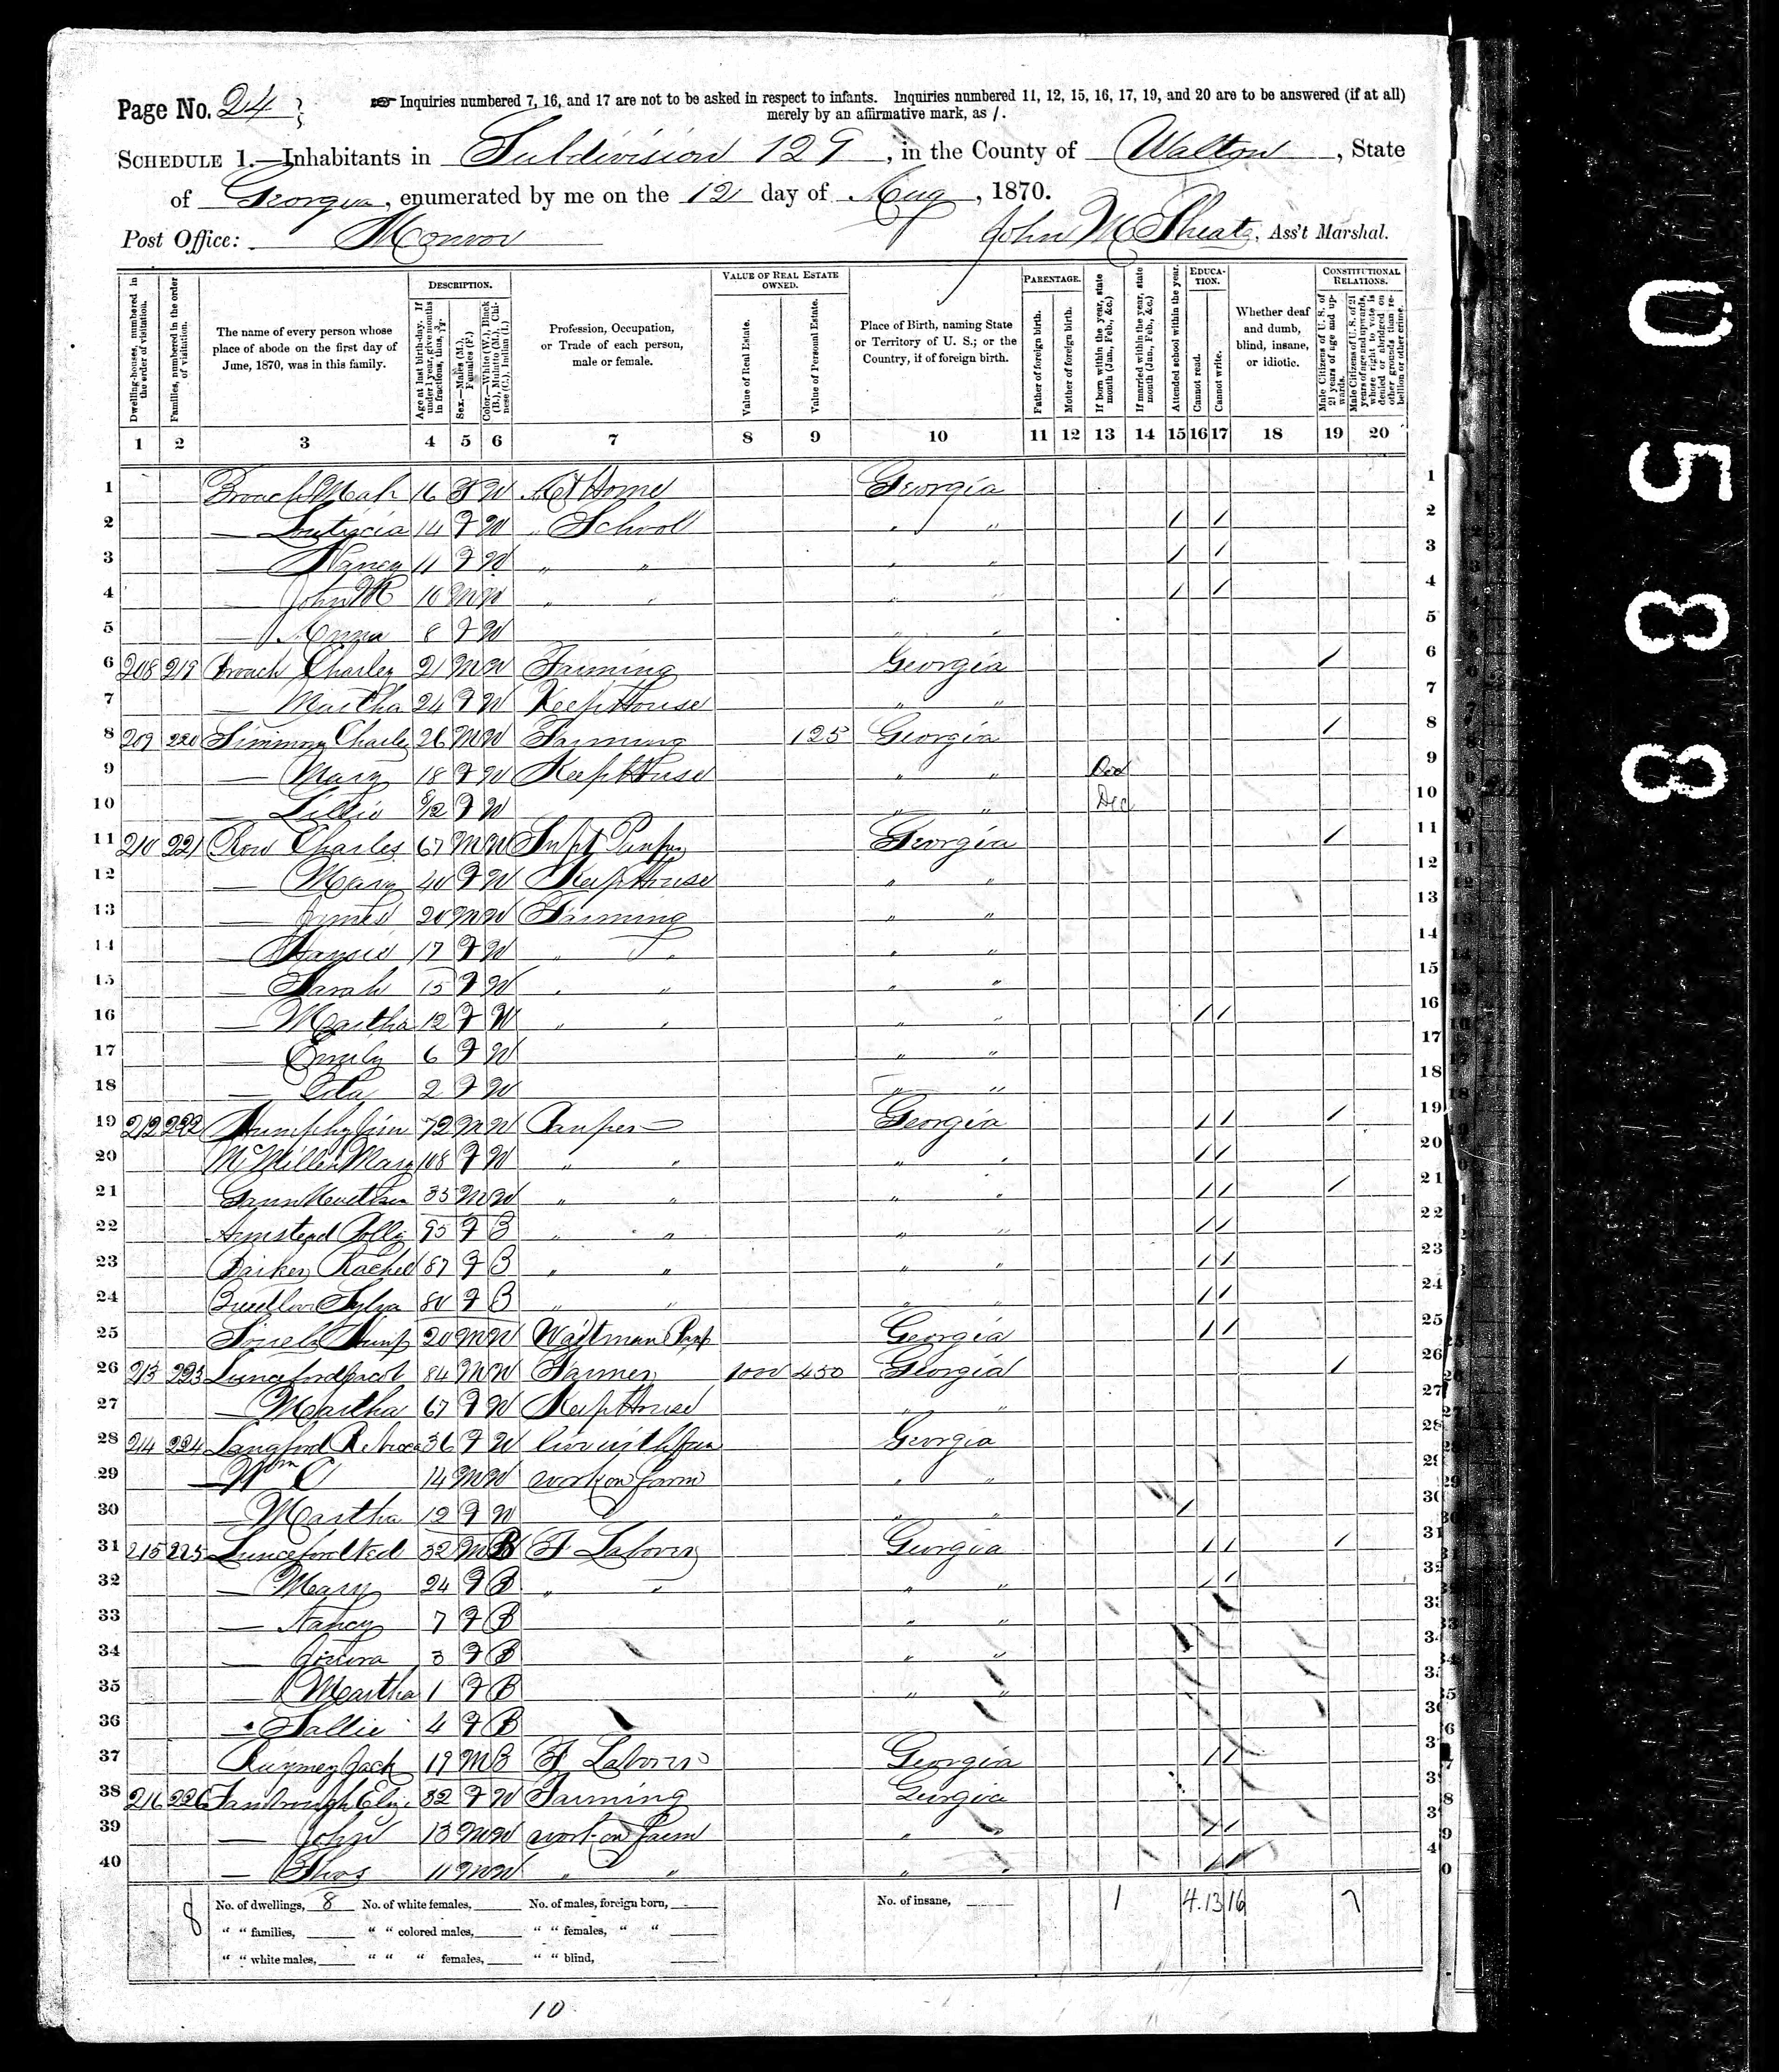 Page No. 24
☞ Inquiries numbered 7, 16, and 17 are not to be asked in respect to infants. Inquiries numbered 11, 12, 15, 16, 17, 19, and 20 are to be answered (if at all)
merely by an affirmative mark, as /.
SCHEDULE 1.—Inhabitants in Subdivision 129, in the County of Walton, State
of Georgia, enumerated by me on the 12 day of Aug, 1870.
Post Office: Monroe
John M Sheats, Ass't Marshal.
Dwelling-houses, numbered in the order of visitation.
Families, numbered in the order of visitation.
The name of every person whose place of abode on the first day of June, 1870, was in this family.
DESCRIPTION.
Age at last birth-day. If under 1 year, give months in fractions, thus, 3/12.
Sex.—Males (M.), Females (F.)
Color.—White (W.), Black (B.), Mulatto (M.), Chinese (C.), Indian (I.)
Profession, Occupation, or Trade of each person, male or female.
VALUE OF REAL ESTATE OWNED.
Value of Real Estate.
Value of Personal Estate.
Place of Birth, naming State or Territory of U. S.; or the Country, if of foreign birth.
PARENTAGE.
Father of foreign birth.
Mother of foreign birth.
If born within the year, state month (Jan., Feb., &c.)
If married within the year, state month (Jan., Feb., &c.)
Attended school within the year.
EDUCATION.
Cannot read.
Cannot write.
Whether deaf and dumb, blind, insane, or idiotic.
CONSTITUTIONAL RELATIONS.
Male Citizens of U. S. of 21 years of age and upwards.
Male Citizens of U. S. of 21 years of age and upwards, whose right to vote is denied or abridged on other grounds than rebellion or other crime.
1 2 3 4 5 6 7 8 9 10 11 12 13 14 15 16 17 18 19 20
1 Broach 16 F W At Home Georgia 1
2 — 14 F W " School " " / / 2
3 — Nancy 11 F W " " " " / / 3
4 — John 10 M W " " " " / / 4
5 — 8 F W " " 5
6 208 219 Broach Charley 21 M W Farming Georgia / 6
7 — Martha 24 F W Keep House " " 7
8 209 220 Simmons Charles 26 M W Farming 125 Georgia / 8
9 — Mary 18 F W Keep House " " 9
10 — Lillie /12 F W " " Dec 10
11 210 221 Row Charles 67 M W Georgia / 11
12 — Mary 40 F W Keep House " " 12
13 — James 20 M W Farming " " 13
14 — 17 F W " " " " 14
15 — Sarah 15 F W " " " " 15
16 — Martha 12 F W " " " " / / 16
17 — Emily 6 F W " " 17
18 — 2 F W " " 18
19 212 222 72 M W Pauper Georgia / / / 19
20 Mary 108 F W " " " " / / 20
21 35 M W " " " " / / / 21
22 Polly 95 F B " " " " / / 22
23 Rachel 87 F B " " " " / / 23
24 80 F B " " " " / / 24
25 20 M W Georgia / / 25
26 213 223 Lunceford Jacob 84 M W Farmer 1000 450 Georgia / 26
27 — Martha 67 F W Keep House " " 27
28 214 224 Langford 36 F W Georgia 28
29 — Wm C 14 M W work on farm " " 29
30 — Martha 12 F W " " / 30
31 215 225 Lunceford 32 M B F Laborer Georgia / / / 31
32 — Mary 24 F B " " " " / / 32
33 — Nancy 7 F B " " 33
34 — 3 F B " "
35 — Martha 1 F B " "
36 — Sallie 4 F B
37 Jack 19 M B F Laborer Georgia / /
38 216 226 32 F W Farming Georgia
39 — John 13 M W work on farm " " / /
40 — Thos 11 M W " " " " / /
8
No. of dwellings, 8 No. of white females, No. of males, foreign born, No. of insane, 1 4 13 16 7
" " families, " " colored males, " " females, " "
" " white males, " " " females, " " blind,
10
0588